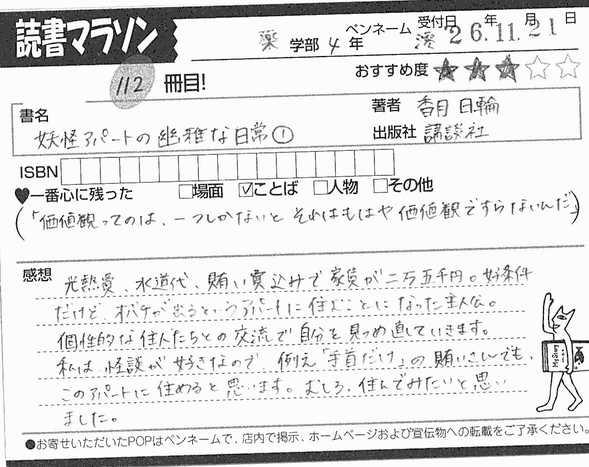 読書マラソン
薬 学部 4 年 ペンネーム 澪 受付日 26年11月21日
112 冊目!
おすすめ度 ★★★☆☆
書名 妖怪アパートの幽雅な日常①
著者 香月 日輪
出版社 講談社
ISBN
♥一番心に残った □場面 ☑ことば □人物 □その他
(「価値観ってのは、一つしかないと それはもはや 価値観ですらないんだ」)
感想 光熱費、水道代、賄い費込みで家賃が二万五千円。好条件
だけど、オバケが出るというアパートに住むことになった主人公。
個性的な住人たちとの交流で自分を見つめ直していきます。
私は 怪談が 好きなので、例え「手首だけ」の 賄いさんでも、
このアパートに住めると思います。むしろ、住んでみたいと思い
ました。
●お寄せいただいたPOPはペンネームで、店内で掲示、ホームページおよび宣伝物への転載をご了承ください。